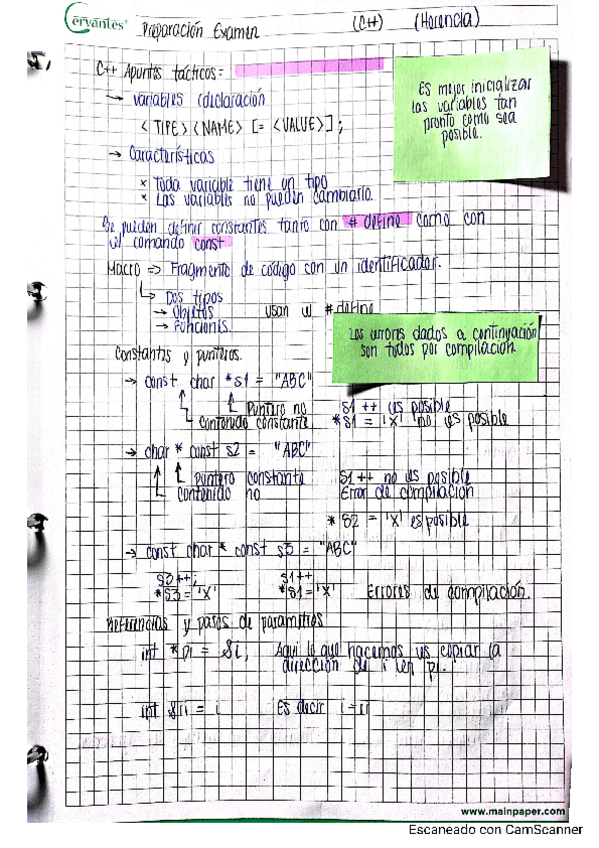 Cervantes
Preparación Examen (C++) (Herencia)
C++ Apuntes tácticos =
→ variables (declaración
<TIPE> <NAME> [= <VALUE>];
→ Características
* Toda variable tiene un tipo
* Las variables no pueden cambiarlo.
Es mejor inicializar
las variables tan
pronto como sea
posible.
Se pueden definir constantes tanto con # define como con
el comando const
Macro => Fragmento de código con un identificador.
→ Dos tipos
→ Objetos usan el # define
→ Funciones.
Los errores dados a continuación
son todos por compilación.
Constantes y punteros.
→ const char *s1 = "ABC"
Puntero no
Contenido constante
s1 ++ es posible
*s1 = 'X' no es posible
→ char * const s2 = "ABC"
puntero constante
Contenido no
s1++ no es posible
Error de compilación
* s2 = 'X' es posible
→ const char * const s3 = "ABC"
s3++; s1++
*s3='X' *s1='X' Errores de compilación.
Referencias y pasos de parametros
int *pi = &i; Aqui lo que hacemos es copiar la
dirección de i en pi.
int &ri = i Es decir
www.mainpaper.com
Escaneado con CamScanner